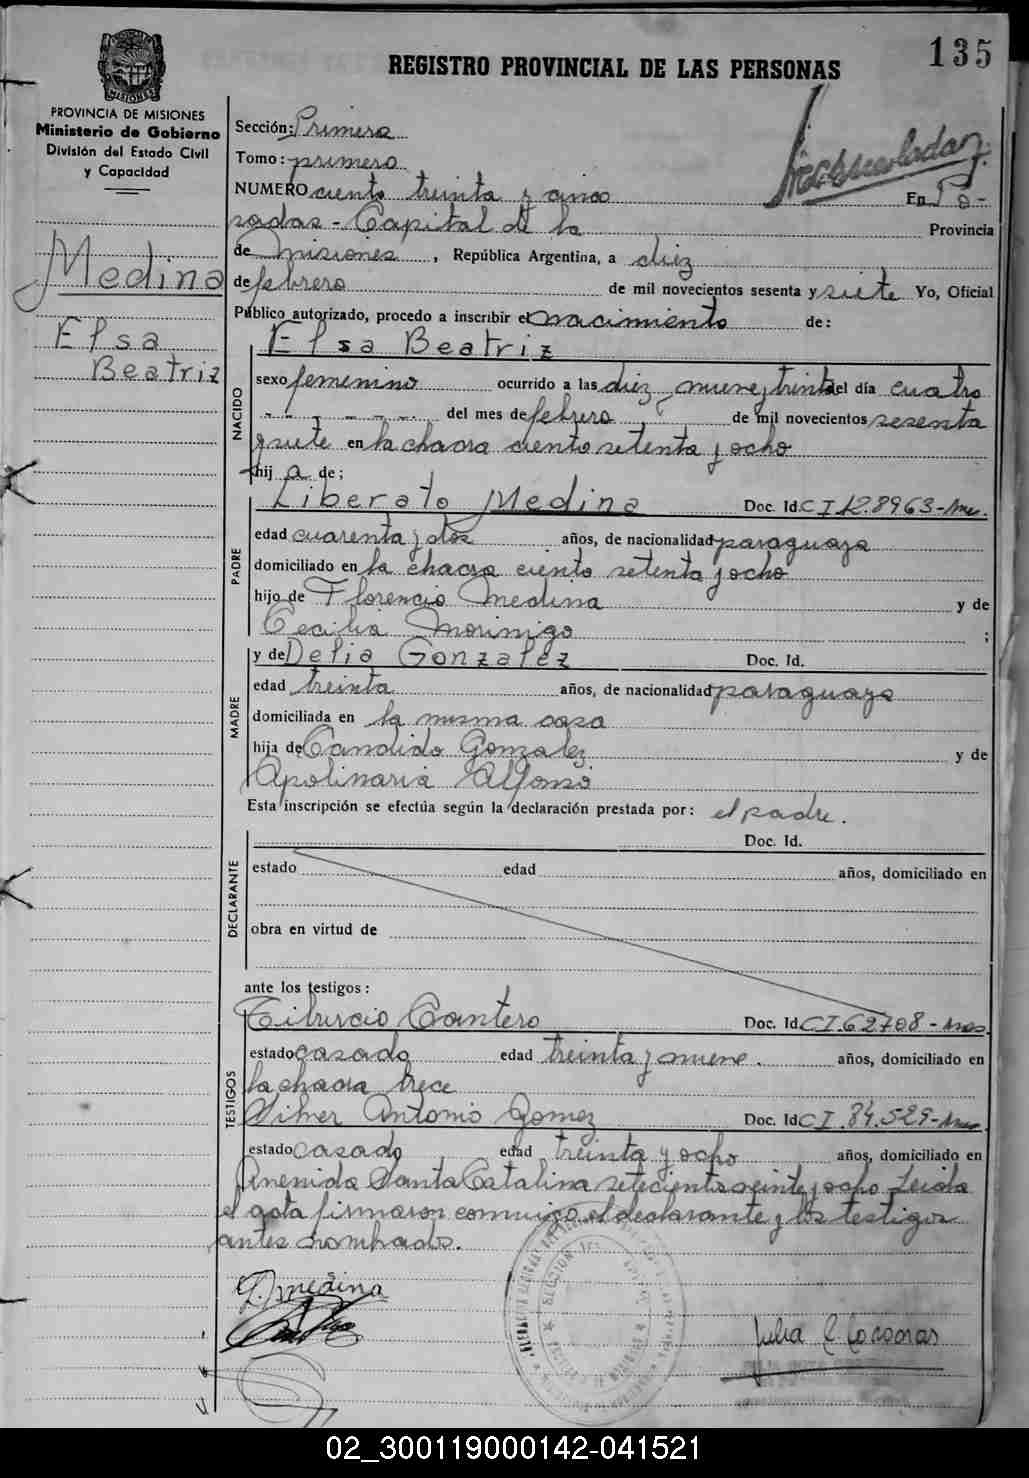 135
REGISTRO PROVINCIAL DE LAS PERSONAS
PROVINCIA DE MISIONES
Ministerio de Gobierno
División del Estado Civil
y Capacidad
Medina
Elsa
Beatriz
Sección: Primera
Tomo: primero
NUMERO ciento treinta y cinco En Po-
sadas - Capital de la Provincia
de Misiones, República Argentina, a diez
de febrero de mil novecientos sesenta y siete Yo, Oficial
Público autorizado, procedo a inscribir el nacimiento de:
Elsa Beatriz
NACIDO
sexo femenino ocurrido a las diez nueve y treinta del día cuatro
del mes de febrero de mil novecientos sesenta
y siete en la chacra ciento setenta y ocho
hija de;
PADRE
Liberato Medina Doc. Id. CI 128963-Mnes.
edad cuarenta y dos años, de nacionalidad paraguaya
domiciliado en la chacra ciento setenta y ocho
hijo de Florencio Medina y de
Cecilia Morinigo ;
MADRE
y de Delia Gonzalez Doc. Id.
edad treinta años, de nacionalidad paraguaya
domiciliada en la misma casa
hija de Candido Gonzalez y de
Apolinaria Alfonso
Esta inscripción se efectúa según la declaración prestada por: el padre.
DECLARANTE
Doc. Id.
estado edad años, domiciliado en
obra en virtud de
ante los testigos:
TESTIGOS
Tiburcio Cantero Doc. Id. CI.62708-Mnes.
estado casado edad treinta y nueve. años, domiciliado en
la chacra trece
Silver Antonio Gomez Doc. Id. CI.84.529-Mnes.
estado casado edad treinta y ocho años, domiciliado en
Avenida Santa Catalina setecientos veinte y ocho Leida
el acta firmaron conmigo el declarante y los testigos
antes nombrados.
L. medina
Julia
02_300119000142-041521